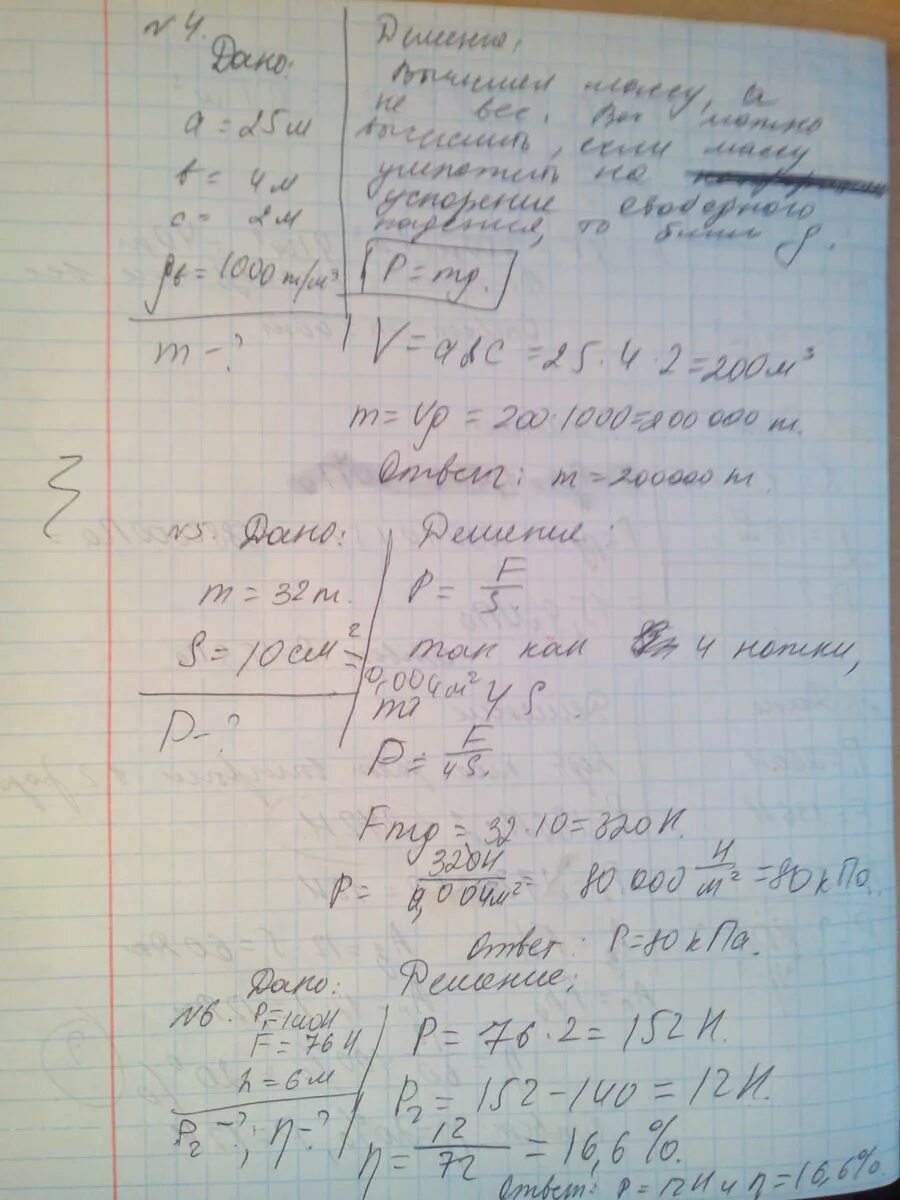 №4.
Дано:
a = 25 м
b = 4 м
c = 2 м
ρв = 1000 т/м³
m - ?
Решение:
Вычислил массу, а
не вес. Вес можно
вычислить, если массу
умножить на
ускорение свободного
падения, то бишь g.
P = mg.
V = abc = 25 · 4 · 2 = 200 м³
m = Vρ = 200·1000 = 200 000 т.
Ответ: m = 200000 т.
№5 Дано:
m = 32 т.
S = 10 см² =
0,004 м²
P - ?
Решение:
P = F/S.
так как 4 ножки,
то 4 S
P = F/4S.
Fmg = 32·10 = 320 Н.
P = 320Н/0,004м² = 80 000 Н/м² = 80 кПа.
Ответ: P = 80 кПа.
Дано:
№6. P₁ = 140Н
F = 76 Н
h = 6 м
P₂ - ?; η - ?
Решение:
P = 76 · 2 = 152 Н.
P₂ = 152 - 140 = 12 Н.
η = 12/72 = 16,6 %.
Ответ: P = 12Н и η = 16,6 %.